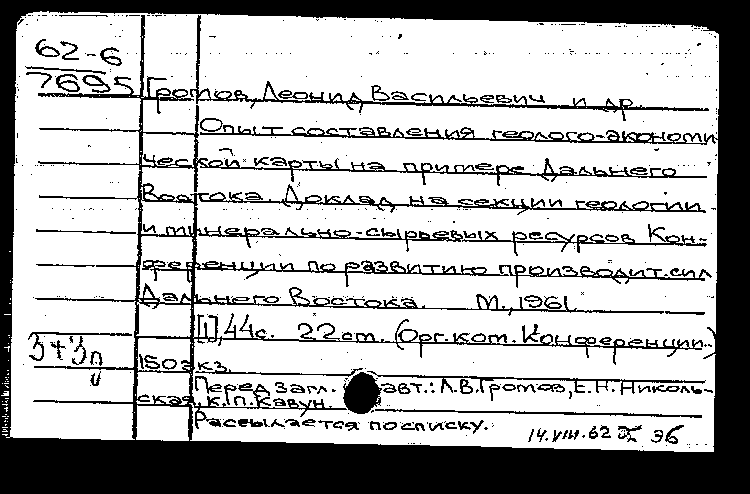 62-6
7695
Громов, Леонид Васильевич и др.
Опыт составления геолого-экономи
ческой карты на примере Дальнего
Востока. Доклад на секции геологии
и минерально-сырьевых ресурсов Кон-
ференции по развитию производит. сил
Дальнего Востока. М., 1961.
[1], 44 с. 22 см. (Орг. ком. Конференции.)
3+3д
150 экз.
Перед загл. авт.: Л.В. Громов, Е.Н. Николь-
ская, К.П. Кавун.
Рассылается по списку.
14.VIII.62 36